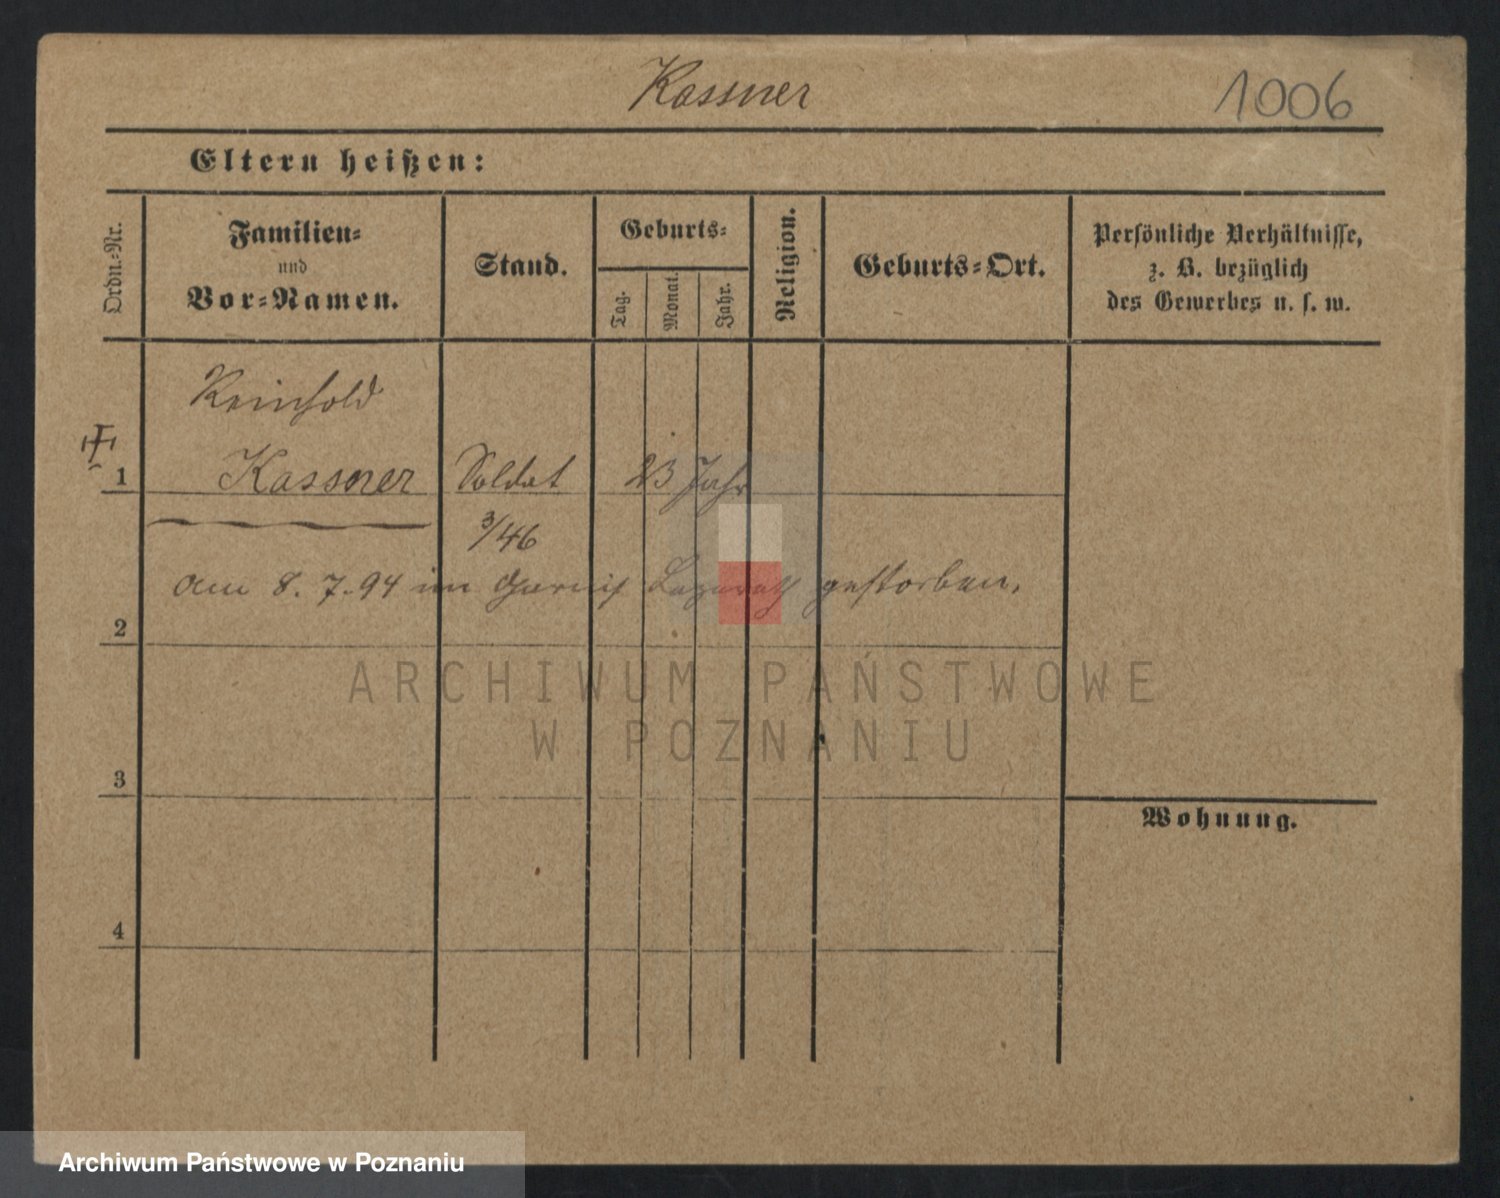 Kassner
1006
Eltern heißen:
Ordn.-Nr.
Familien-
und
Vor-Namen.
Stand.
Geburts-
Tag.
Monat.
Jahr.
Religion.
Geburts-Ort.
Persönliche Verhältnisse,
z. B. bezüglich
des Gewerbes u. s. w.
Reinhold
1 Kassner Soldat 23 Jahr
3/46
am 8. 7. 94 im Garnis Lazareth gestorben.
2
ARCHIWUM PAŃSTWOWE
W POZNANIU
3
Wohnung.
4
Archiwum Państwowe w Poznaniu